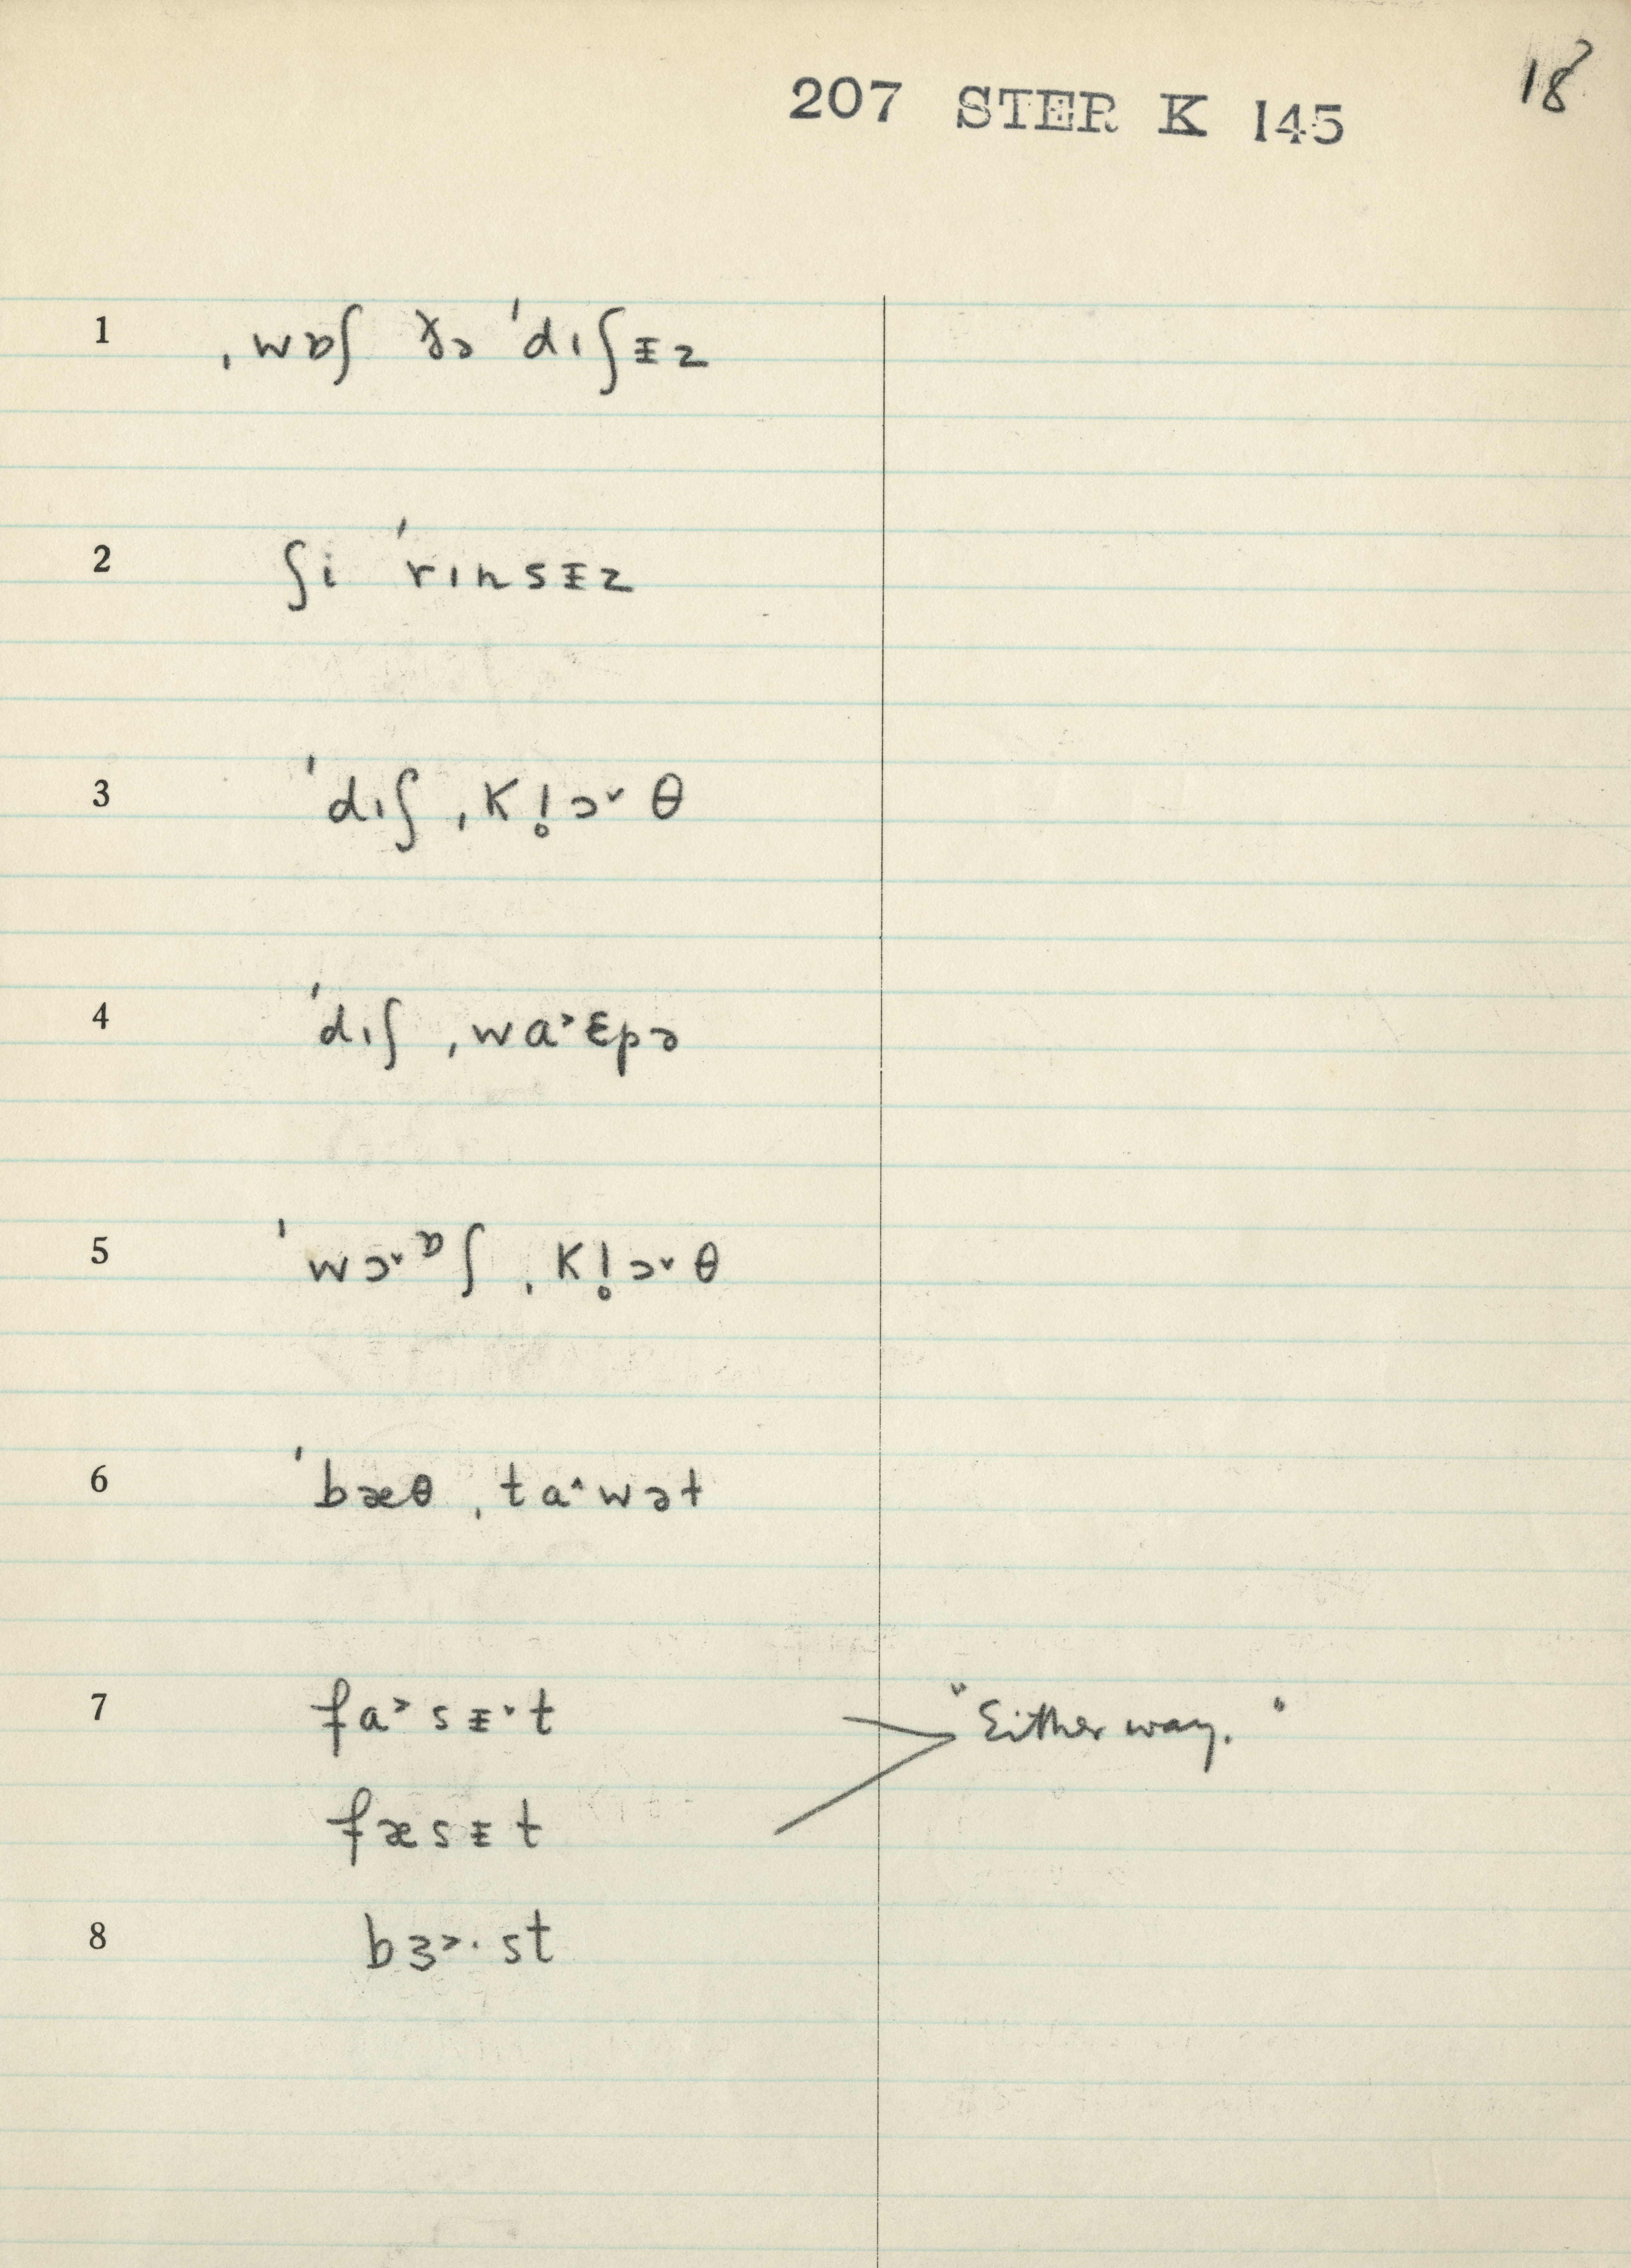 207 STER K 145
18
1 ˌwɒʃ ðə ˈdɪʃᵻz
2 ʃi ˈrɪnsᵻz
3 ˈdɪʃ ˌkl̥ɔ˅θ
4 ˈdɪʃ ˌwa˃ɛpə
5 ˈwɔ˅ᶛʃ ˌkl̥ɔ˅θ
6 ˈbæθ ˌta˄wət
7 fa˃sᵻ˅t "Either way."
fæsᵻt
8 bɜ˃·st